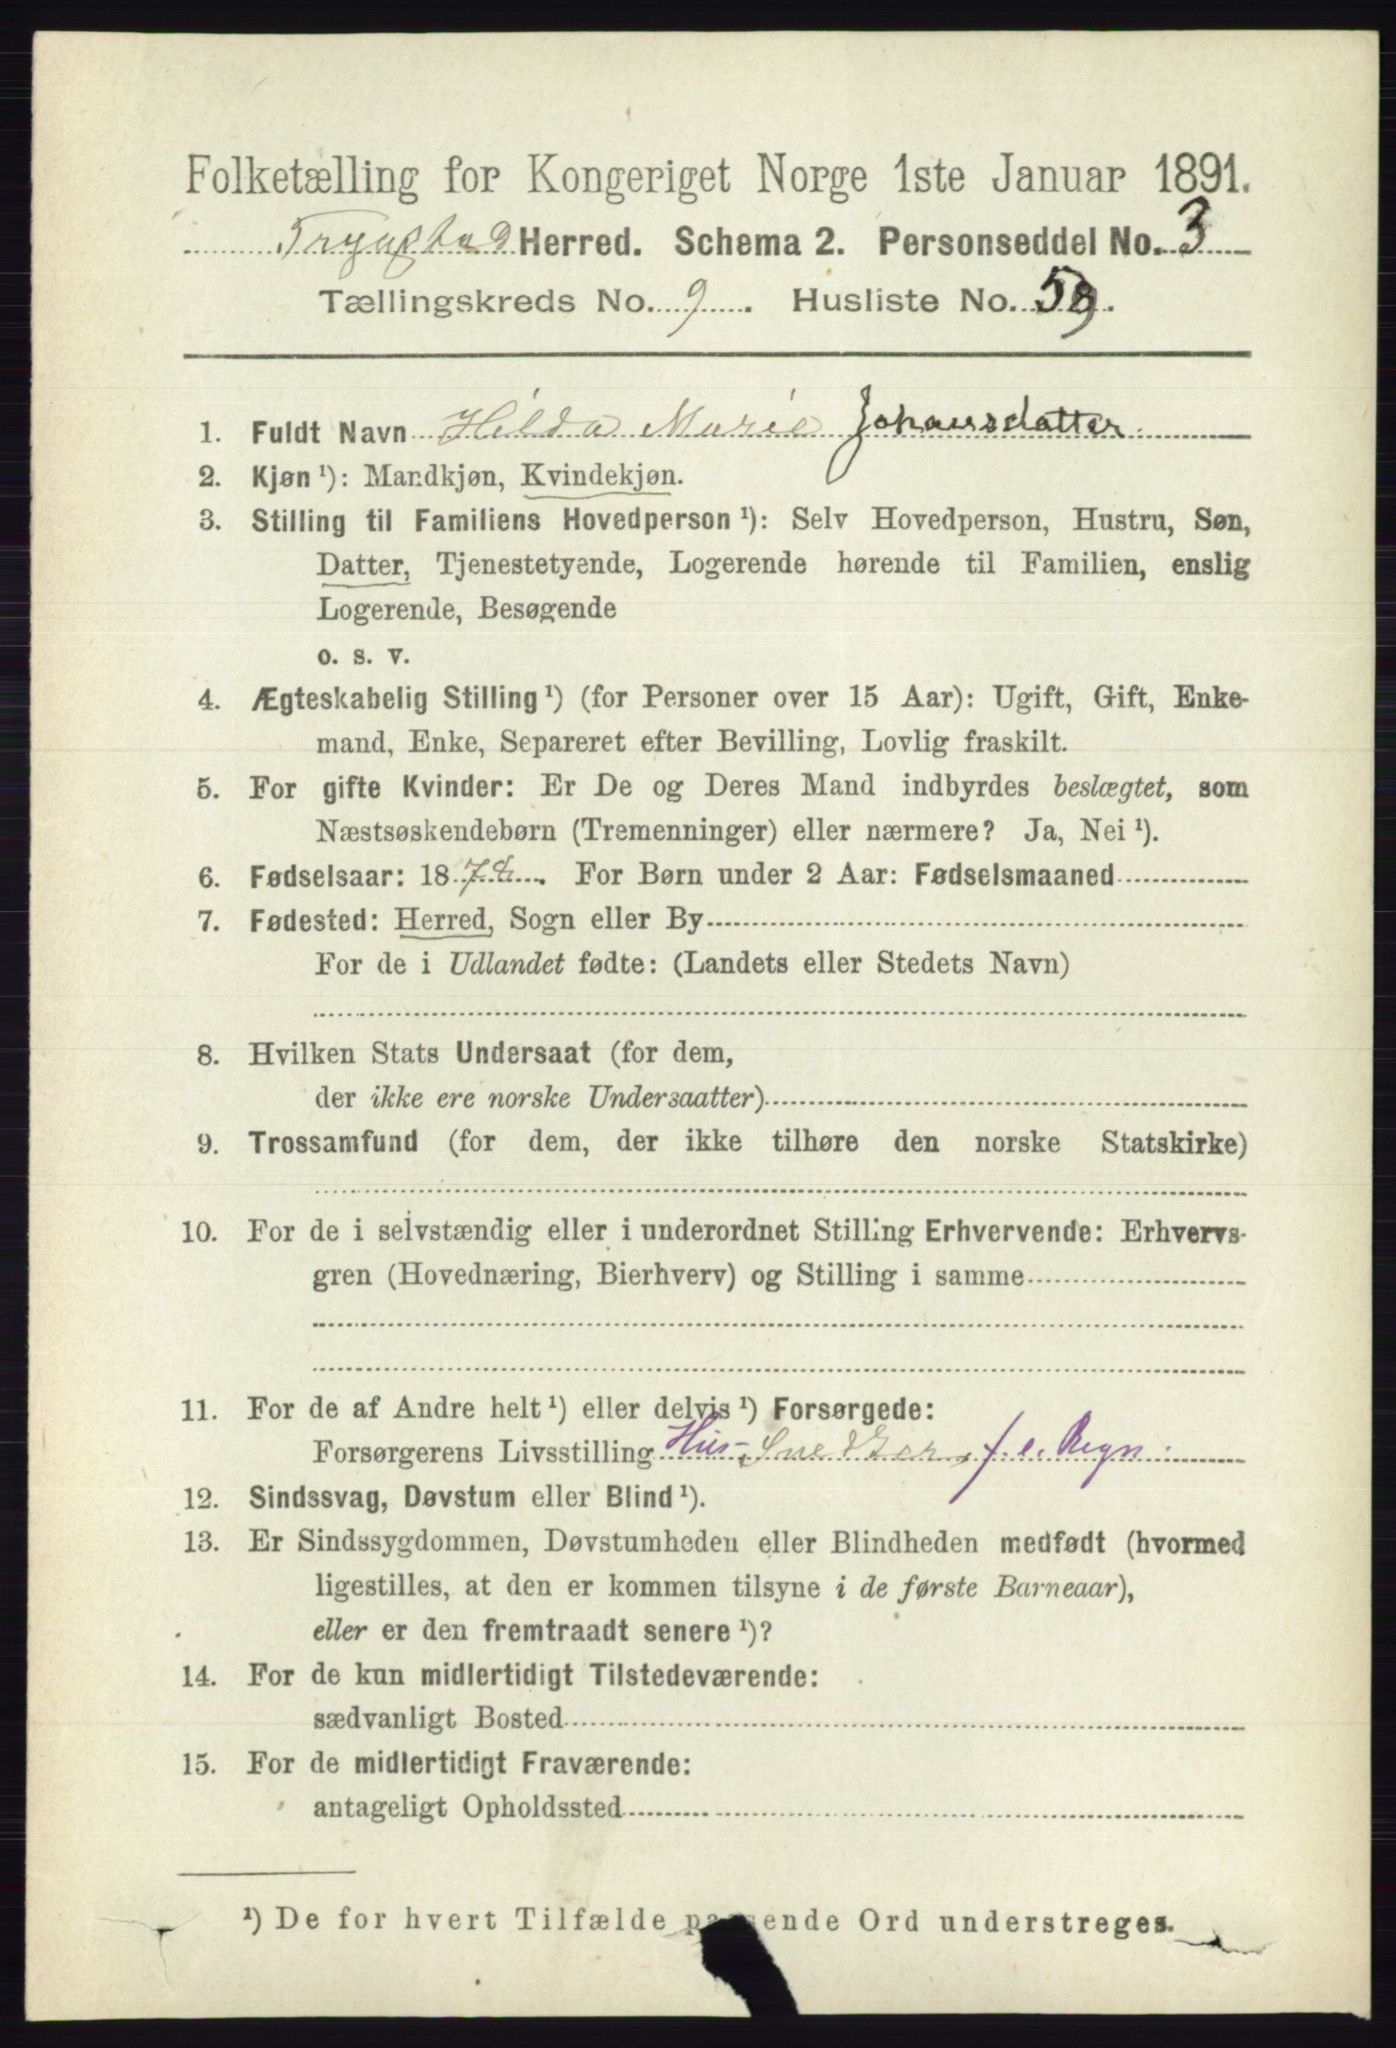 Folketælling for Kongeriget Norge 1ste Januar 1891.
Trygstad Herred. Schema 2. Personseddel No. 3
Tællingskreds No. 9. Husliste No. 59.
1. Fuldt Navn Hilda Marie Johansdatter
2. Kjøn ¹): Mandkjøn, Kvindekjøn.
3. Stilling til Familiens Hovedperson ¹): Selv Hovedperson, Hustru, Søn,
Datter, Tjenestetyende, Logerende hørende til Familien, enslig
Logerende, Besøgende
o. s. v.
4. Ægteskabelig Stilling ¹) (for Personer over 15 Aar): Ugift, Gift, Enke-
mand, Enke, Separeret efter Bevilling, Lovlig fraskilt.
5. For gifte Kvinder: Er De og Deres Mand indbyrdes beslægtet, som
Næstsøskendebørn (Tremenninger) eller nærmere? Ja, Nei ¹).
6. Fødselsaar: 1878. For Børn under 2 Aar: Fødselsmaaned
7. Fødested: Herred, Sogn eller By
For de i Udlandet fødte: (Landets eller Stedets Navn)
8. Hvilken Stats Undersaat (for dem,
der ikke ere norske Undersaatter)
9. Trossamfund (for dem, der ikke tilhøre den norske Statskirke)
10. For de i selvstændig eller i underordnet Stilling Erhvervende: Erhvervs-
gren (Hovednæring, Bierhverv) og Stilling i samme
11. For de af Andre helt ¹) eller delvis ¹) Forsørgede:
Forsørgerens Livsstilling Hus- f. e. Regn.
12. Sindssvag, Døvstum eller Blind ¹).
13. Er Sindssygdommen, Døvstumheden eller Blindheden medfødt (hvormed
ligestilles, at den er kommen tilsyne i de første Barneaar),
eller er den fremtraadt senere ¹)?
14. For de kun midlertidigt Tilstedeværende:
sædvanligt Bosted
15. For de midlertidigt Fraværende:
antageligt Opholdssted
¹) De for hvert Tilfælde passende Ord understreges.